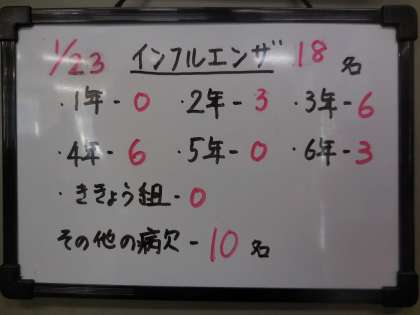 1/23 インフルエンザ 18名
・1年-0 ・2年-3 ・3年-6
・4年-6 ・5年-0 ・6年-3
・ききょう組-0
その他の病欠-10名